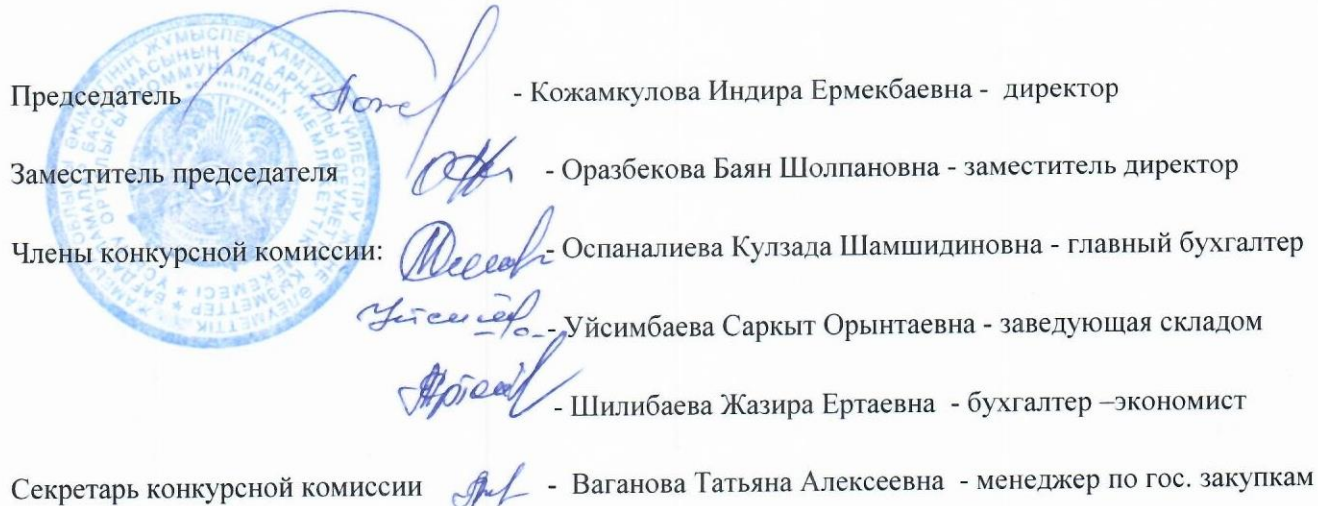 Председатель - Кожамкулова Индира Ермекбаевна - директор
Заместитель председателя - Оразбекова Баян Шолпановна - заместитель директор
Члены конкурсной комиссии: - Оспаналиева Кулзада Шамшидиновна - главный бухгалтер
- Уйсимбаева Саркыт Орынтаевна - заведующая складом
- Шилибаева Жазира Ертаевна - бухгалтер –экономист
Секретарь конкурсной комиссии - Ваганова Татьяна Алексеевна - менеджер по гос. закупкам